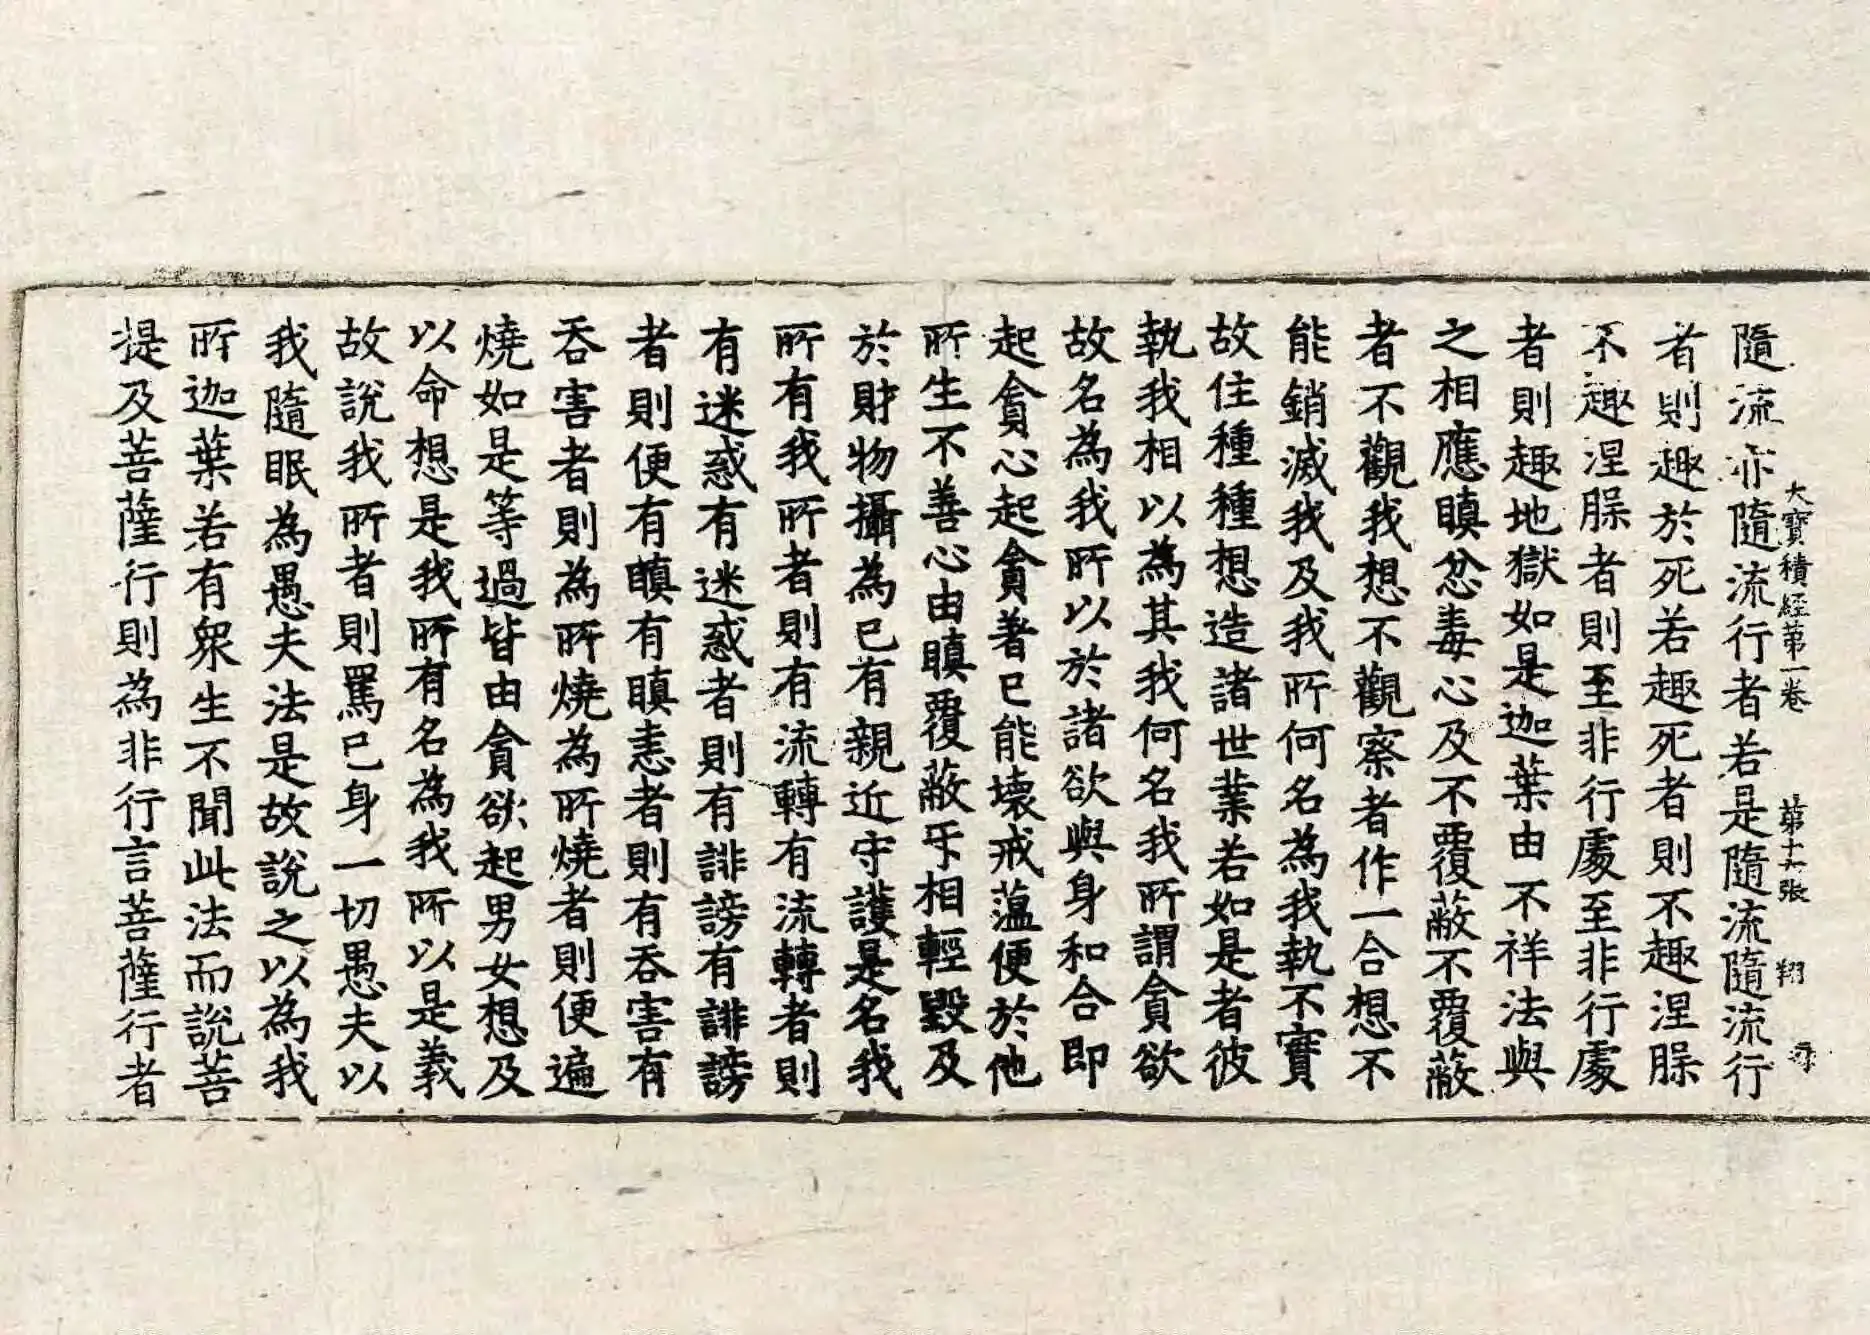 大寶積經第一卷 第十六張 翔
隨流亦隨流行者若是隨流隨流行
者則趣於死若趣死者則不趣涅脲
不趣涅脲者則至非行處至非行處
者則趣地獄如是迦葉由不祥法與
之相應瞋忿毒心及不覆蔽不覆蔽
者不觀我想不觀察者作一合想不
能銷滅我及我所何名為我執不實
故住種種想造諸世業若如是者彼
執我相以為其我何名我所謂貪欲
故名為我所以於諸欲與身和合即
起貪心起貪著已能壞戒蕰便於他
所生不善心由瞋覆蔽㸦相輕毀及
於財物攝為已有親近守護是名我
所有我所者則有流轉有流轉者則
有迷惑有迷惑者則有誹謗有誹謗
者則便有瞋有瞋恚者則有吞害有
吞害者則為所燒為所燒者則便遍
燒如是等過皆由貪欲起男女想及
以命想是我所有名為我所以是義
故說我所者則罵已身一切愚夫以
我隨眠為愚夫法是故說之以為我
所迦葉若有眾生不聞此法而說菩
提及菩薩行則為非行言菩薩行者